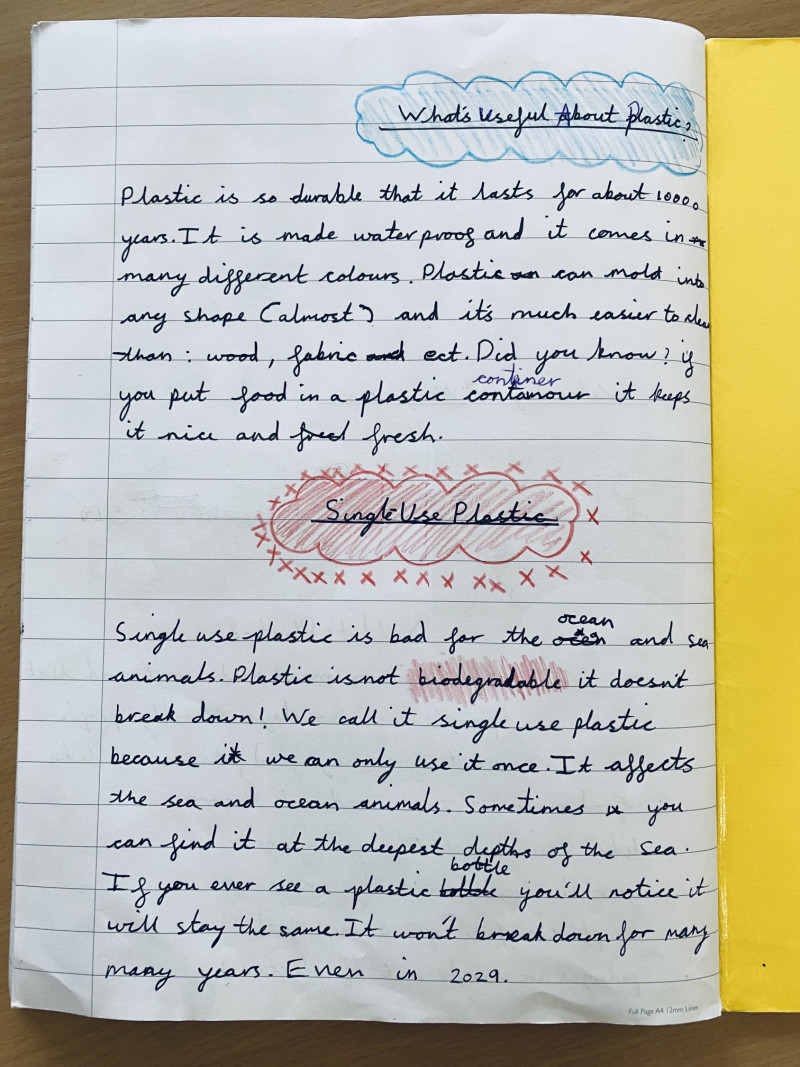 What's Useful About Plastic?
Plastic is so durable that it lasts for about 10000
years. It is made waterproof and it comes in
many different colours. Plastic can mold into
any shape (almost) and it's much easier to clean
than: wood, fabric and ect. Did you know? if
continer
you put food in a plastic contamour it keeps
it nice and fresh.
Single Use Plastic
ocean
Single use plastic is bad for the and sea
animals. Plastic is not biodegradable it doesn't
break down! We call it single use plastic
because it we can only use it once. It affects
the sea and ocean animals. Sometimes you
can find it at the deepest depths of the sea.
bottle
If you ever see a plastic you'll notice it
will stay the same. It won't break down for many
many years. Even in 2029.
Full Page A4 12mm Lines